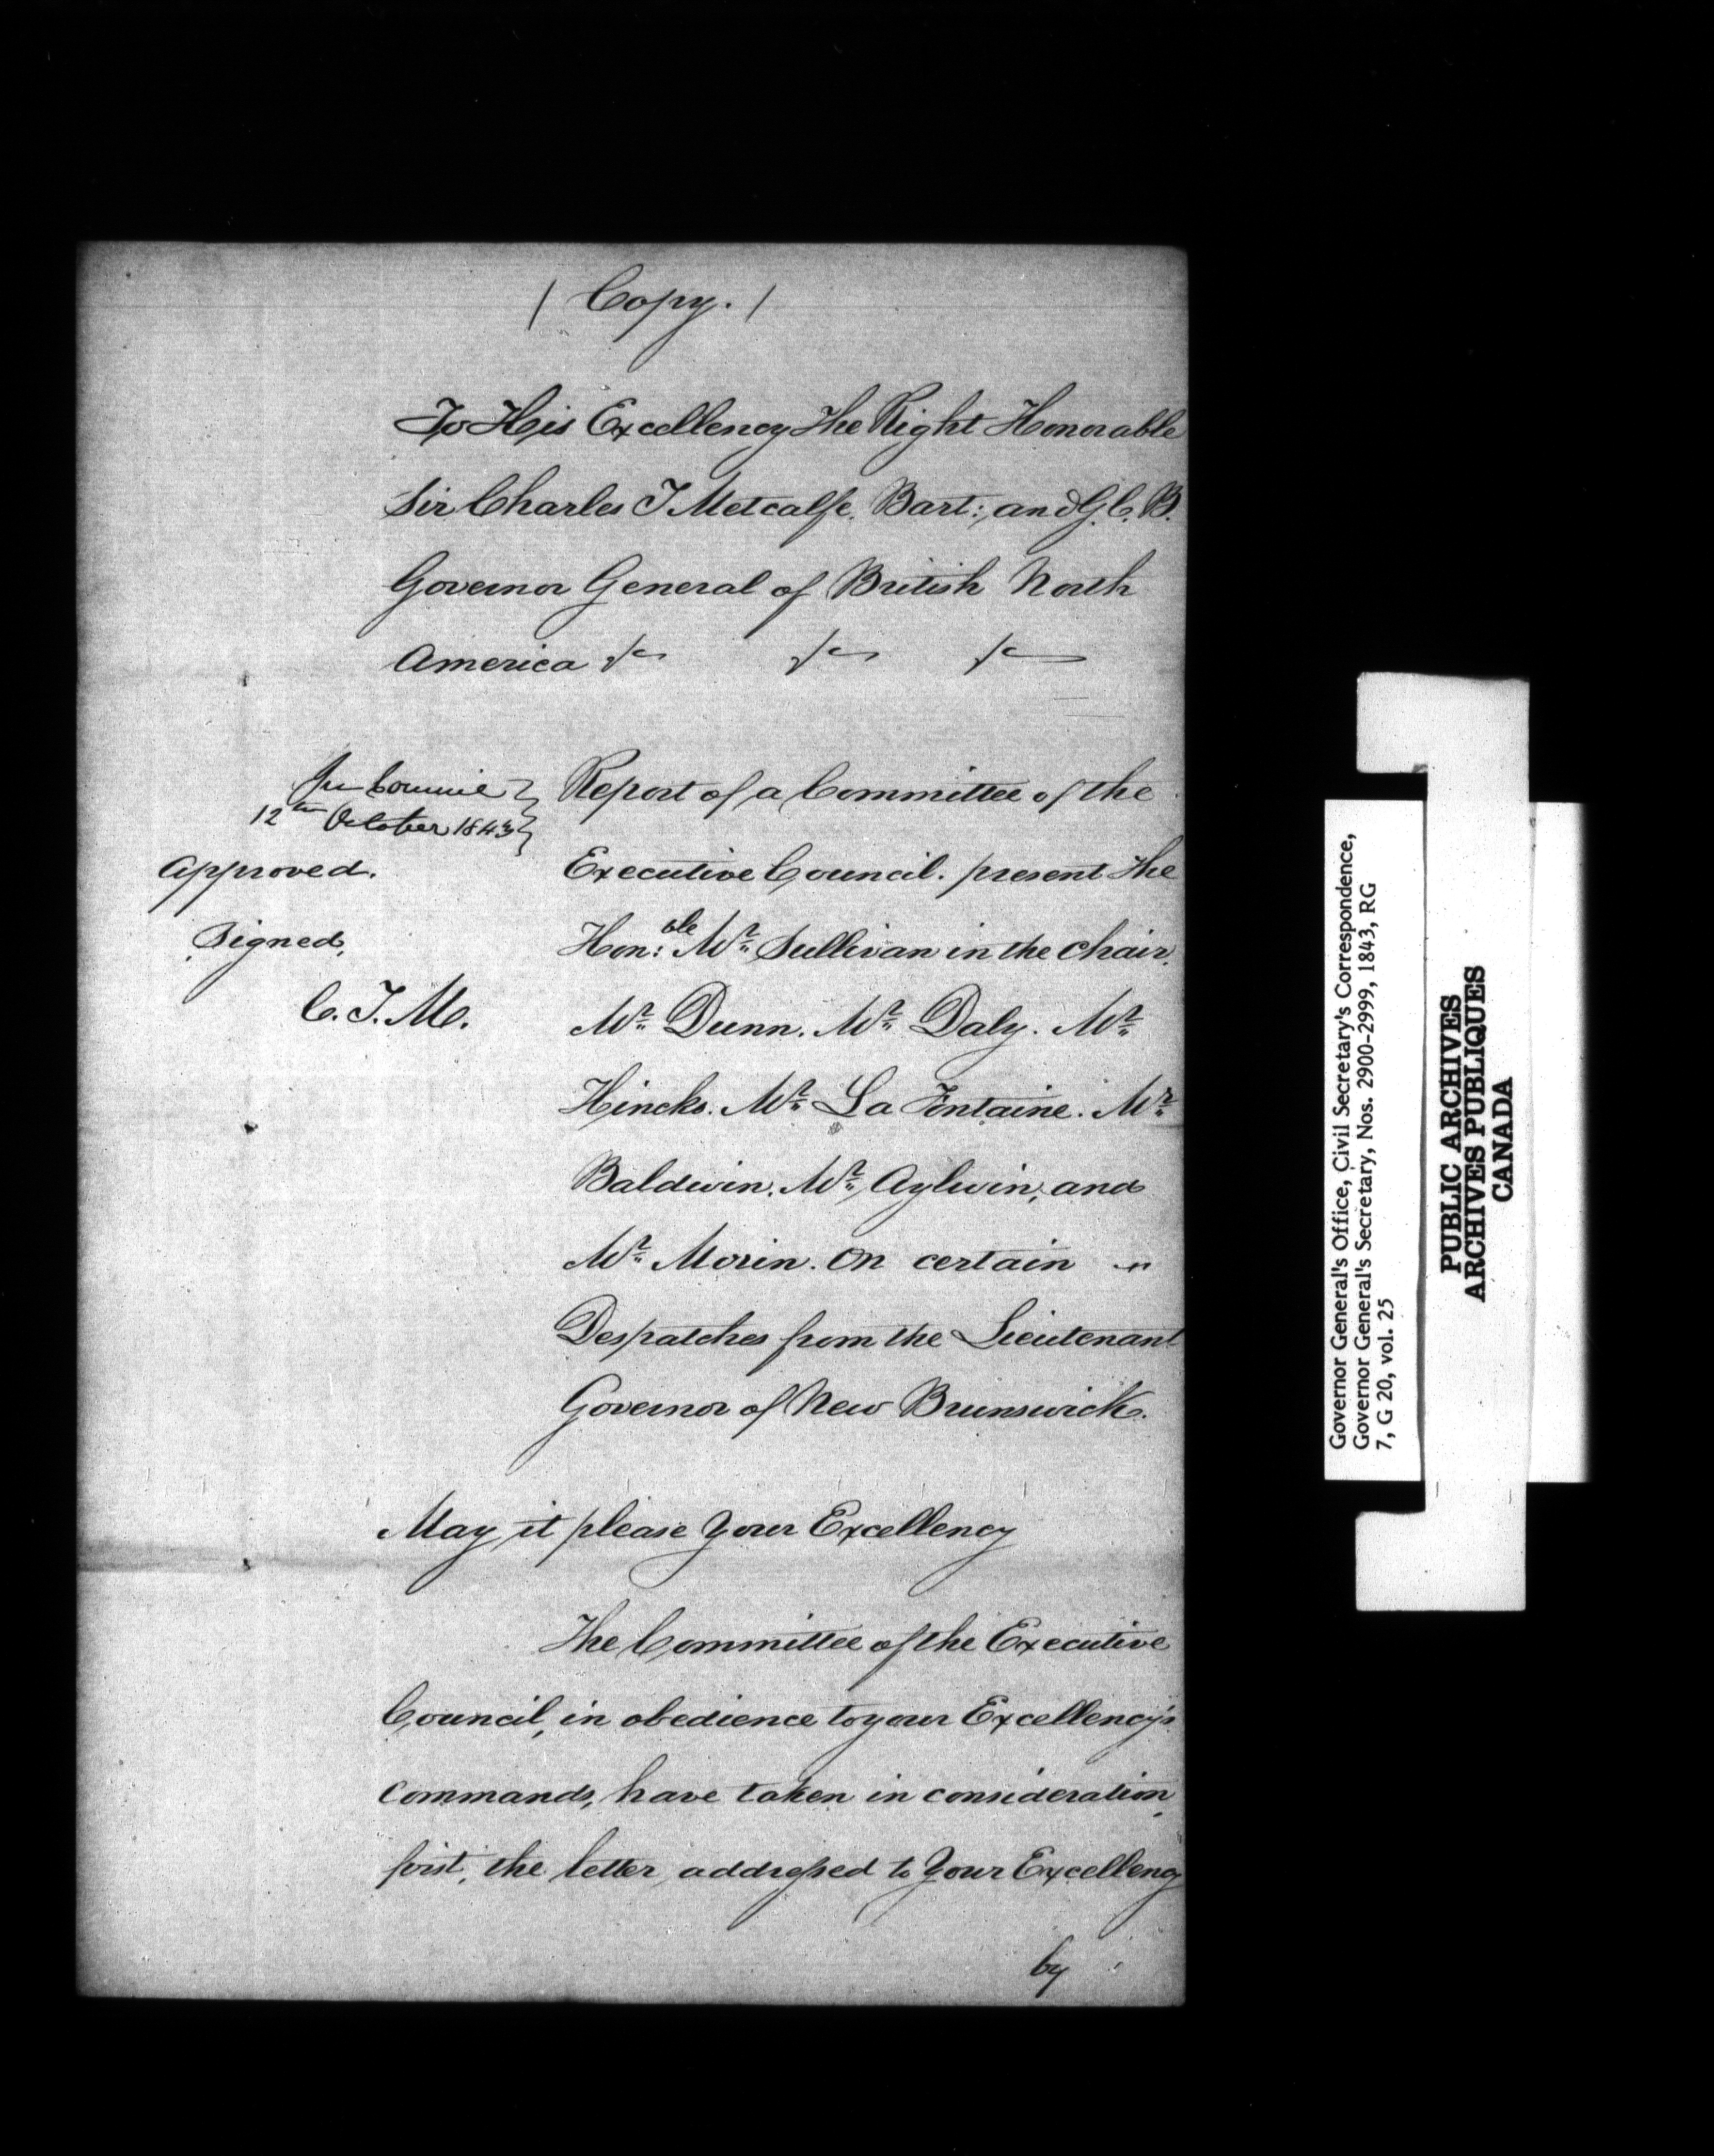 ( Copy. )
To His Excellency The Right Honorable
Sir Charles T Metcalfe. Bart: and G. C. B.
Governor General of British North
America &c &c &c
In Council
12th October 1843
Approved.
Signed,
C. T. M.
Report of a Committee of the
Executive Council. present The
Hon:ble Mr Sullivan in the Chair.
Mr Dunn. Mr Daly. Mr
Hincks. Mr La Fontaine. Mr
Baldwin. Mr Aylwin, and
Mr Morin. On certain
Despatches from the Lieutenant
Governor of New Brunswick.
May it please Your Excellency
The Committee of the Executive
Council, in obedience to your Excellency's
commands, have taken in consideration,
first, the letter addressed to Your Excellency
by
Governor General's Office, Civil Secretary's Correspondence,
Governor General's Secretary, Nos. 2900-2999, 1843, RG
7, G 20, vol. 25
PUBLIC ARCHIVES
ARCHIVES PUBLIQUES
CANADA